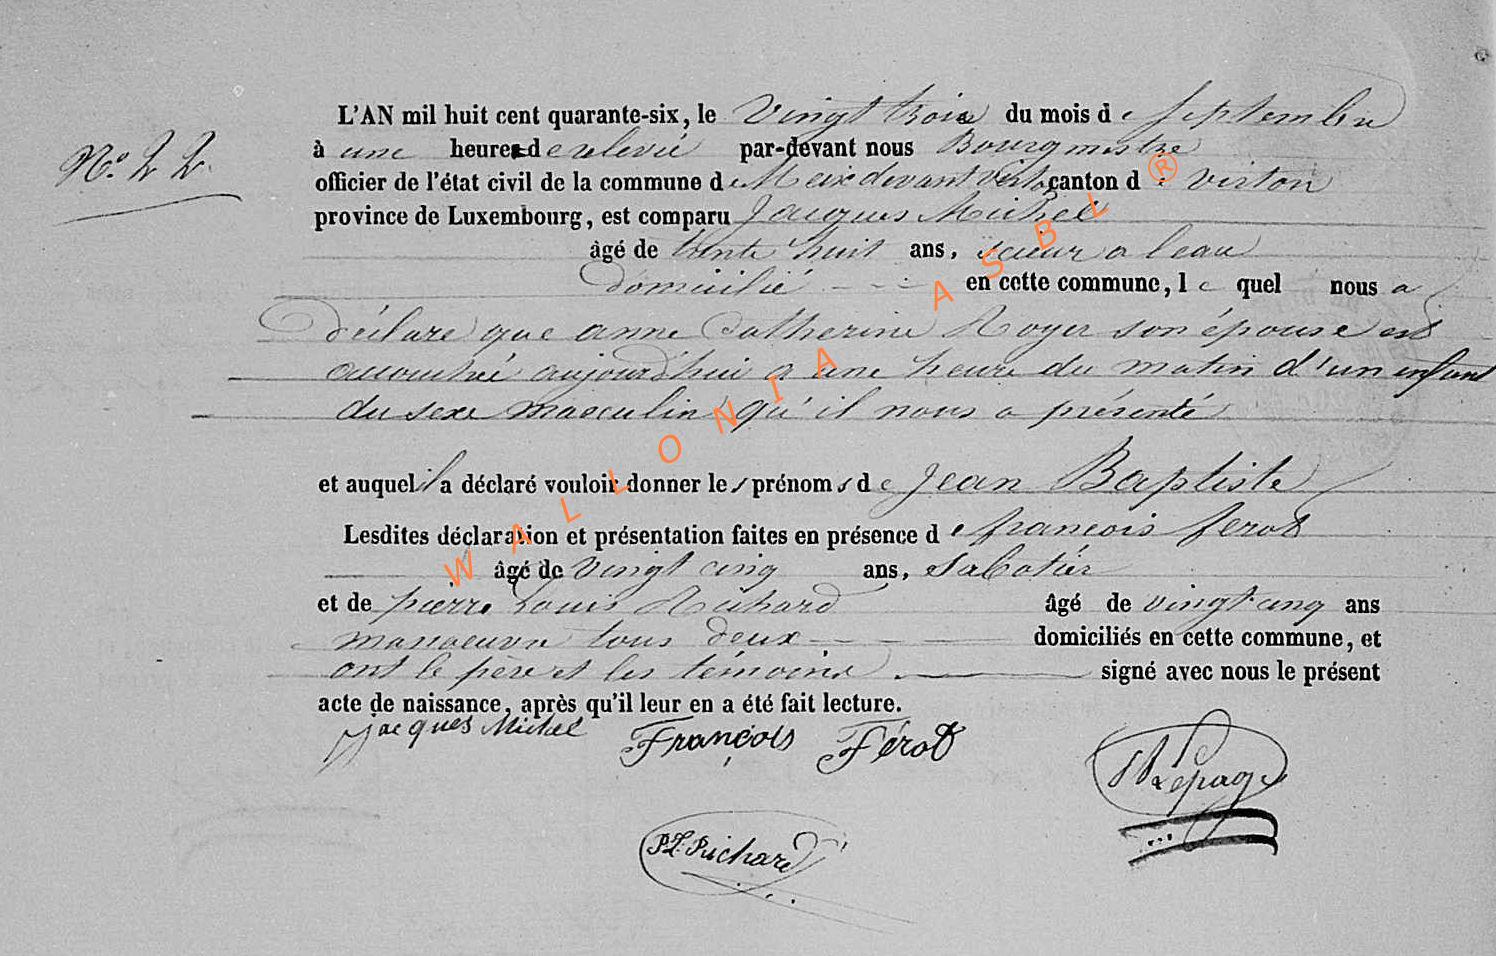 N.º 22.
L'AN mil huit cent quarante-six, le Vingt trois du mois de Septembre
à une heure de relevée par-devant nous Bourgmestre
officier de l'état civil de la commune de Meix devant Virton canton de Virton
province de Luxembourg, est comparu Jacques Michel
âgé de trente huit ans, scieur a l'eau
domicilié en cette commune, lequel nous a
déclaré que anne Catherine Royer son épouse est
accouchée aujourd'hui a une heure du matin d'un enfant
du sexe masculin qu'il nous a présenté
et auquel il a déclaré vouloir donner les prénoms de Jean Baptiste
Lesdites déclaration et présentation faites en présence de françois ferot
âgé de vingt cinq ans, Sabotier
et de pierre Louis Richard âgé de vingt cinq ans
manoeuvre tous deux domiciliés en cette commune, et
ont le père et les témoins signé avec nous le présent
acte de naissance, après qu'il leur en a été fait lecture.
jacques Michel François Férot Lepage
P L Richard
WALLONIA ASBL ®